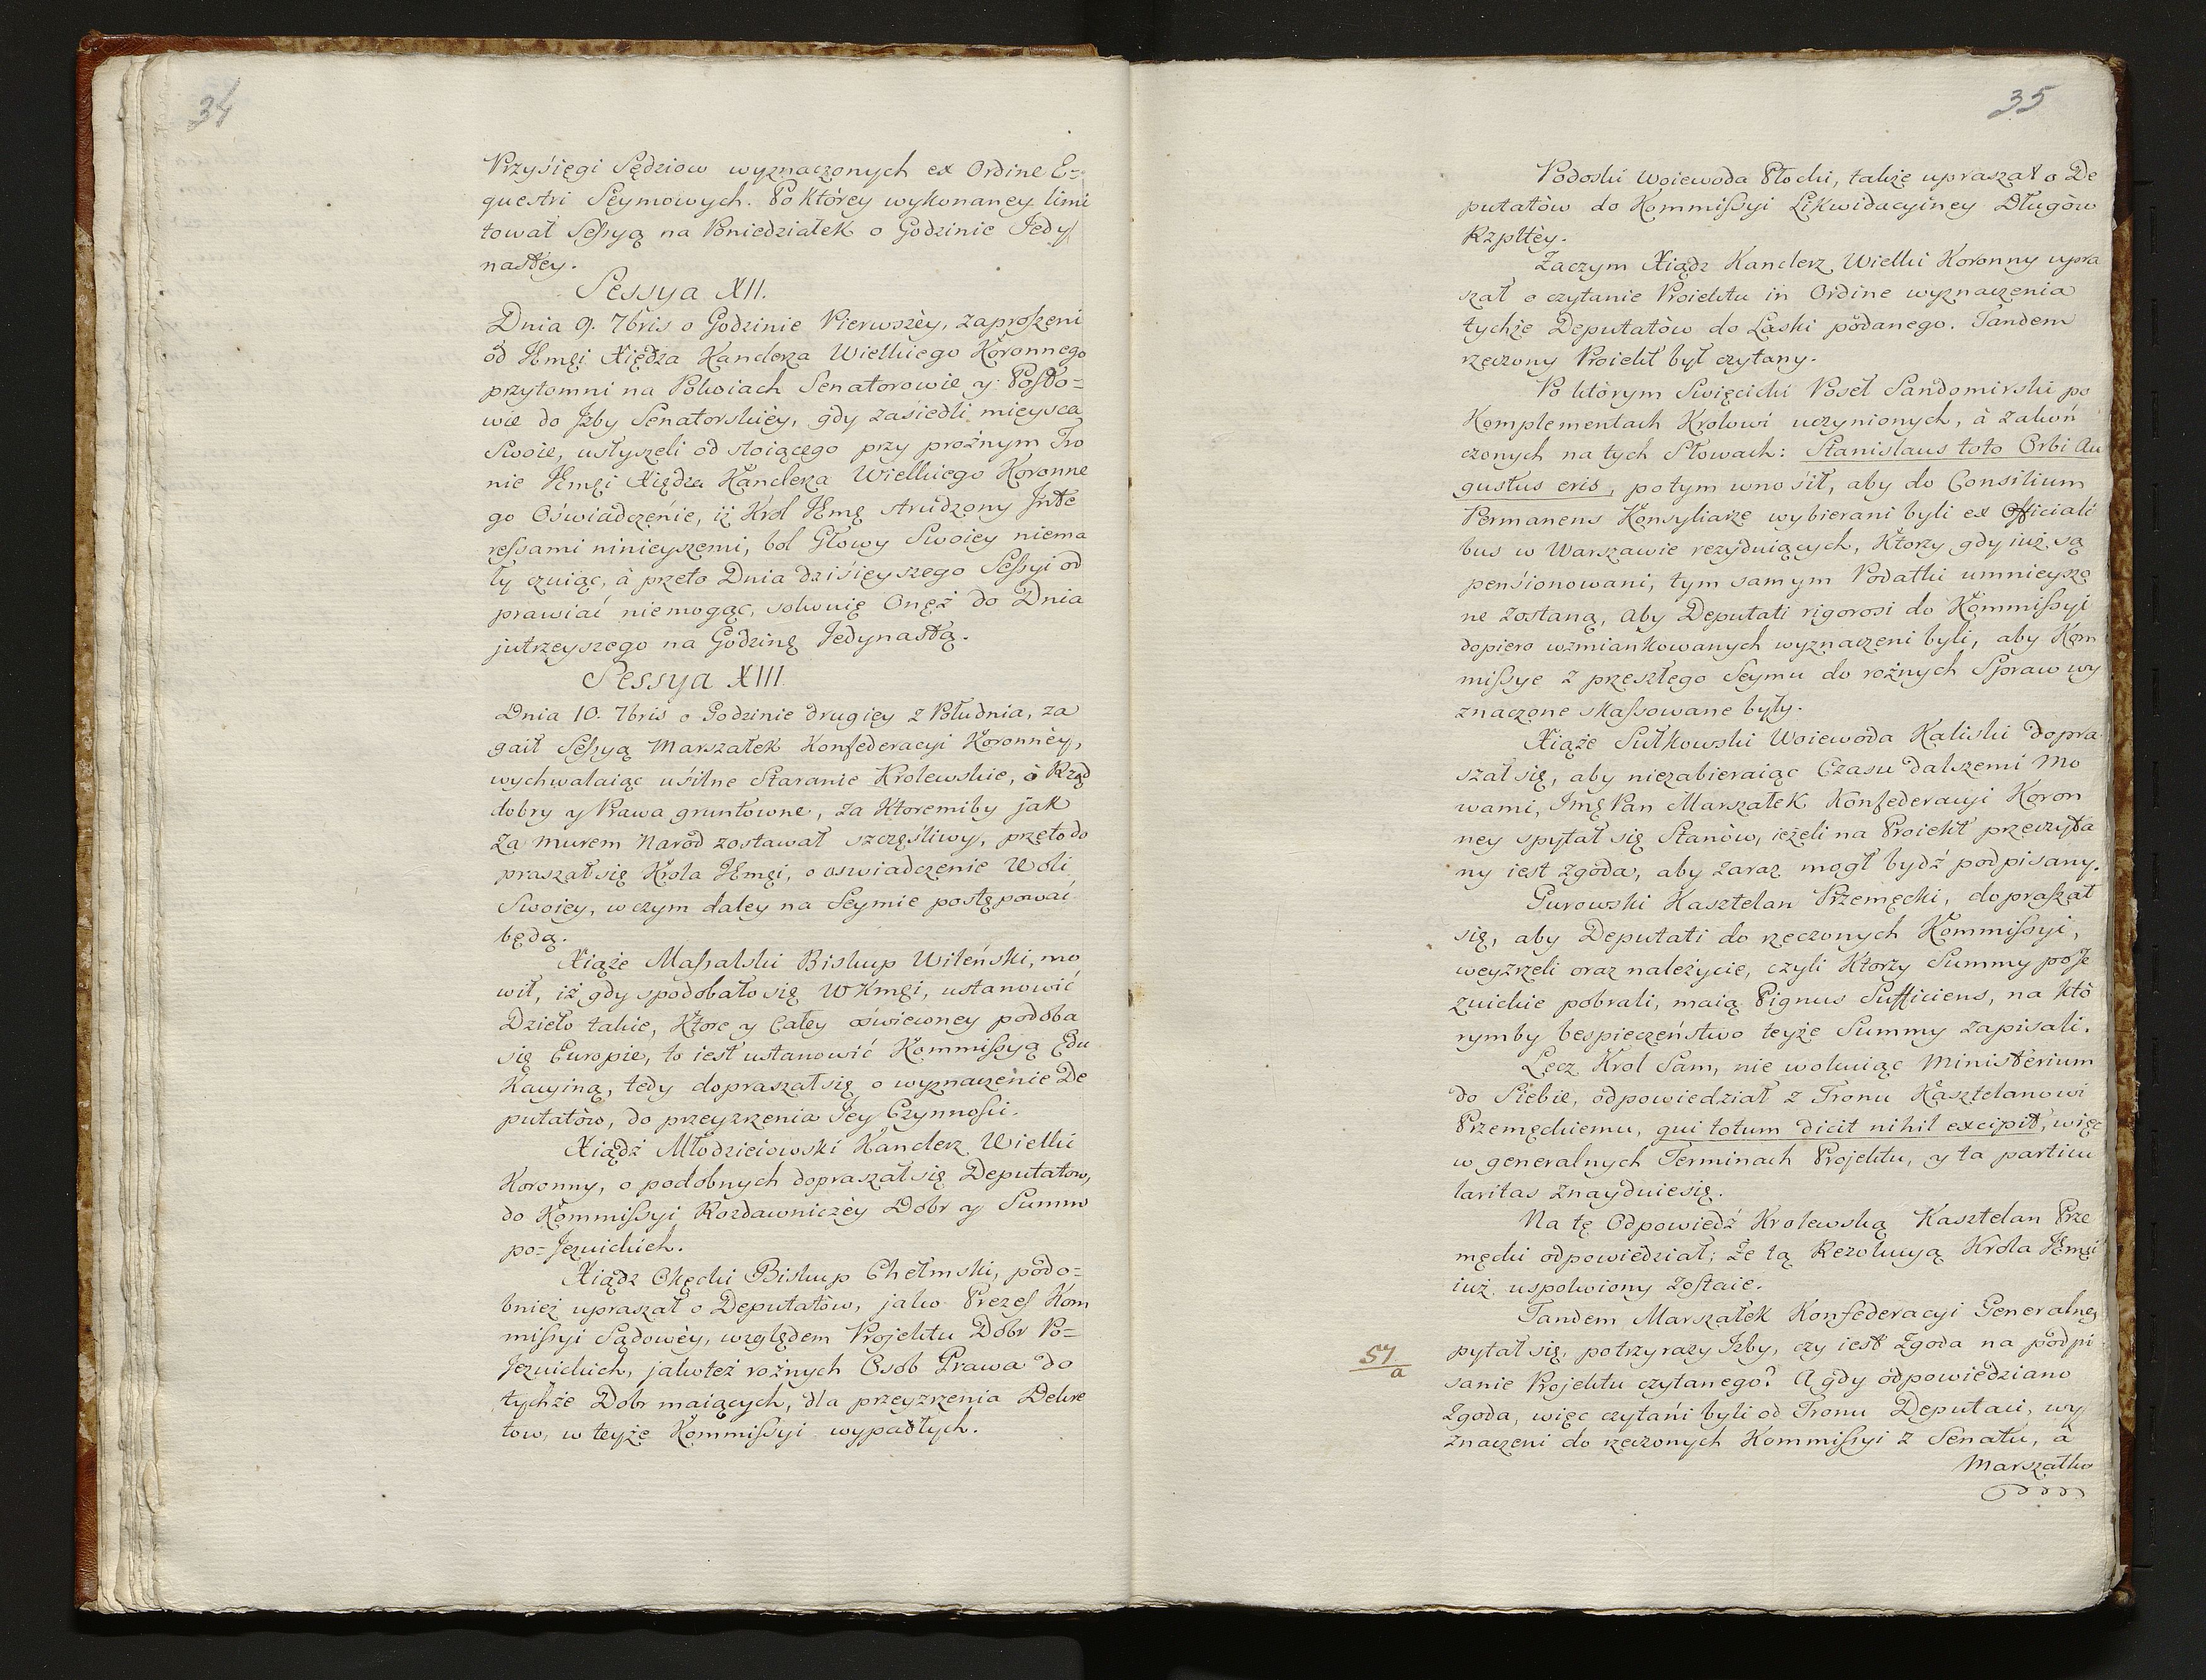 34
Przysięgi Sędziow wyznaczonych ex Ordine E=
questri Seymowych. Po którey wykonaney limi
tował Sessyą na Poniedziałek o Godzinie Jedy
nastéy.
Sessya XII.
Dnia 9. 7bris o Godzinie Pierwszéy, zaproszeni
od JKmęi Xiędza Kanclerza Wielkiego Koronnego
przytomni na Pokoiach Senatorowie y Posło=
wie do Jzby Senatorskiéy, gdy zasiedli mieysca
Swoie, usłyszeli od stoiącego przy proźnym Tro
nie JKmęi Xiędza Kanclerza Wielkiego Koronne
go Oświadczenie, iż Krol JKmę strudzony Jnte
ressami ninieyszemi, bol Głowy Swoiey niema
ły czuiąc, à przeto Dnia dzisieyszego Sessyi od
prawiać niemogąc, solwuię Onęż do Dnia
jutrzeyszego na Godzinę Jedynastą.
Sessya XIII
Dnia 10. 7bris o Godzinie drugiey z Południa, za
gaił Sessyą Marszałek Konfederacyi Koronnéy,
wychwalaiąc usilne Staranie Krolewskie, ò Rząd
dobry y Prawa gruntowne, za Ktoremiby jak
za murem Narod zostawał szczęśliwy, przeto do
praszał się Krola JKmęi, o oswiadczenie Woli
Swoiey, w czym daley na Seymie postępować
będą.
Xiąże Massalski Biskup Wileński, mo
wił, iż gdy spodobało się WKmęi, ustanowić
Dzieło takie, Ktore y Całey oświewney podoba
się Europie, to iest ustanowić Kommissyą Edu
Kacyiną, tedy dopraszał się o wyznaczenie De
putatów, do przeyzrzenia Jey Czynności.
Xiądz Młodzieiowski Kanclerz Wielki
Koronny, o podobnych dopraszał się Deputatow,
do Kommissyi Rozdawniczéy Dobr y Summ
po=Jezuickich.
Xiądz Okęcki Biskup Chełmski, podo=
bnież upraszał o Deputatów, jako Prezes Kom
missyi Sądowéy, względem Projektu Dobr Po=
Jezuickich, jako też rożnych Osob Prawa do
tychże Dobr maiących, dla przeyzrzenia Dekre
tow, w teyże Kommissyi wypadłych.
35
Podoski Woiewoda Płocki, także upraszał o De
putatów do Kommissyi Likwidacyiney Długów
Rzpltéy.
Zaczym Xiądz Kanclerz Wielki Koronny upra
szał o czytanie Proiektu in Ordine wyznaczenia
tychże Deputatów do Laski podanego. Tandem
rzeczony Proiekt był czytany.
Po którym Swięcicki Poseł Sandomirski po
Komplementach Krolowi uczynionych, à zakoń
czonych na tych Słowach: Stanislaus toto Orbi Au
gustus eris, potym wnosił, aby do Consilium
Permanens Konsyliarze wybierani byli ex Officiali
bus w Warszawie rezyduiących, Ktorzy gdy iuż są
pensionowani, tym samym Podatki umnieysze
ne zostaną, Aby Deputati rigorosi do Kommissyi
dopiero wzmiankowanych wyznaczeni byli, aby Kom
missye z przeszłego Seymu do rożnych Spraw wy
znaczone skassowane były.
Xiąże Sułkowski Woiewoda Kaliski dopra
szał się, aby niezabieraiąc Czasu dalszemi Mo
wami, Jmę Pan Marszałek Konfederacyi Koron
ney spytał się Stanów, ieżeli na Proiekt przeczyta
ny iest zgoda, aby zaraz mogł bydź podpisany.
Gurowski Kasztelan Przemęcki, dopraszał
się, aby Deputati do rzeczonych Kommissyi,
weyzrzeli oraz należycie, czyli Ktorzy Summy poJe
zuickie pobrali, maią Pignus Sufficiens, na któ
rymby bespieczeństwo teyże Summy zapisali.
Lecz Krol Sam, nie wokuiąc Ministerium
do Siebie, odpowiedział z Tronu Kasztelanowi
Przemęckiemu, qui totum dicit nihil excipit, więc
w generalnych Terminach Projektu, y ta particu
laritas znayduiesię.
Na tę Odpowiedź Krolewską Kasztelan Prze
męcki odpowiedział; Że tą Rezolucyą Krola JKmęi
iuż uspokoiony zostaie.
Tandem Marszałek Konfederacyi Generalney
pytał się, potrzy razy Jzby, czy iest Zgoda na podpi
sanie Projektu czytanego? A gdy odpowiedziano
Zgoda, więc czytani byli od Tronu Deputaci, wy
znaczeni do rzeczonych Kommissyi z Senatu, à
Marszałko
57
a